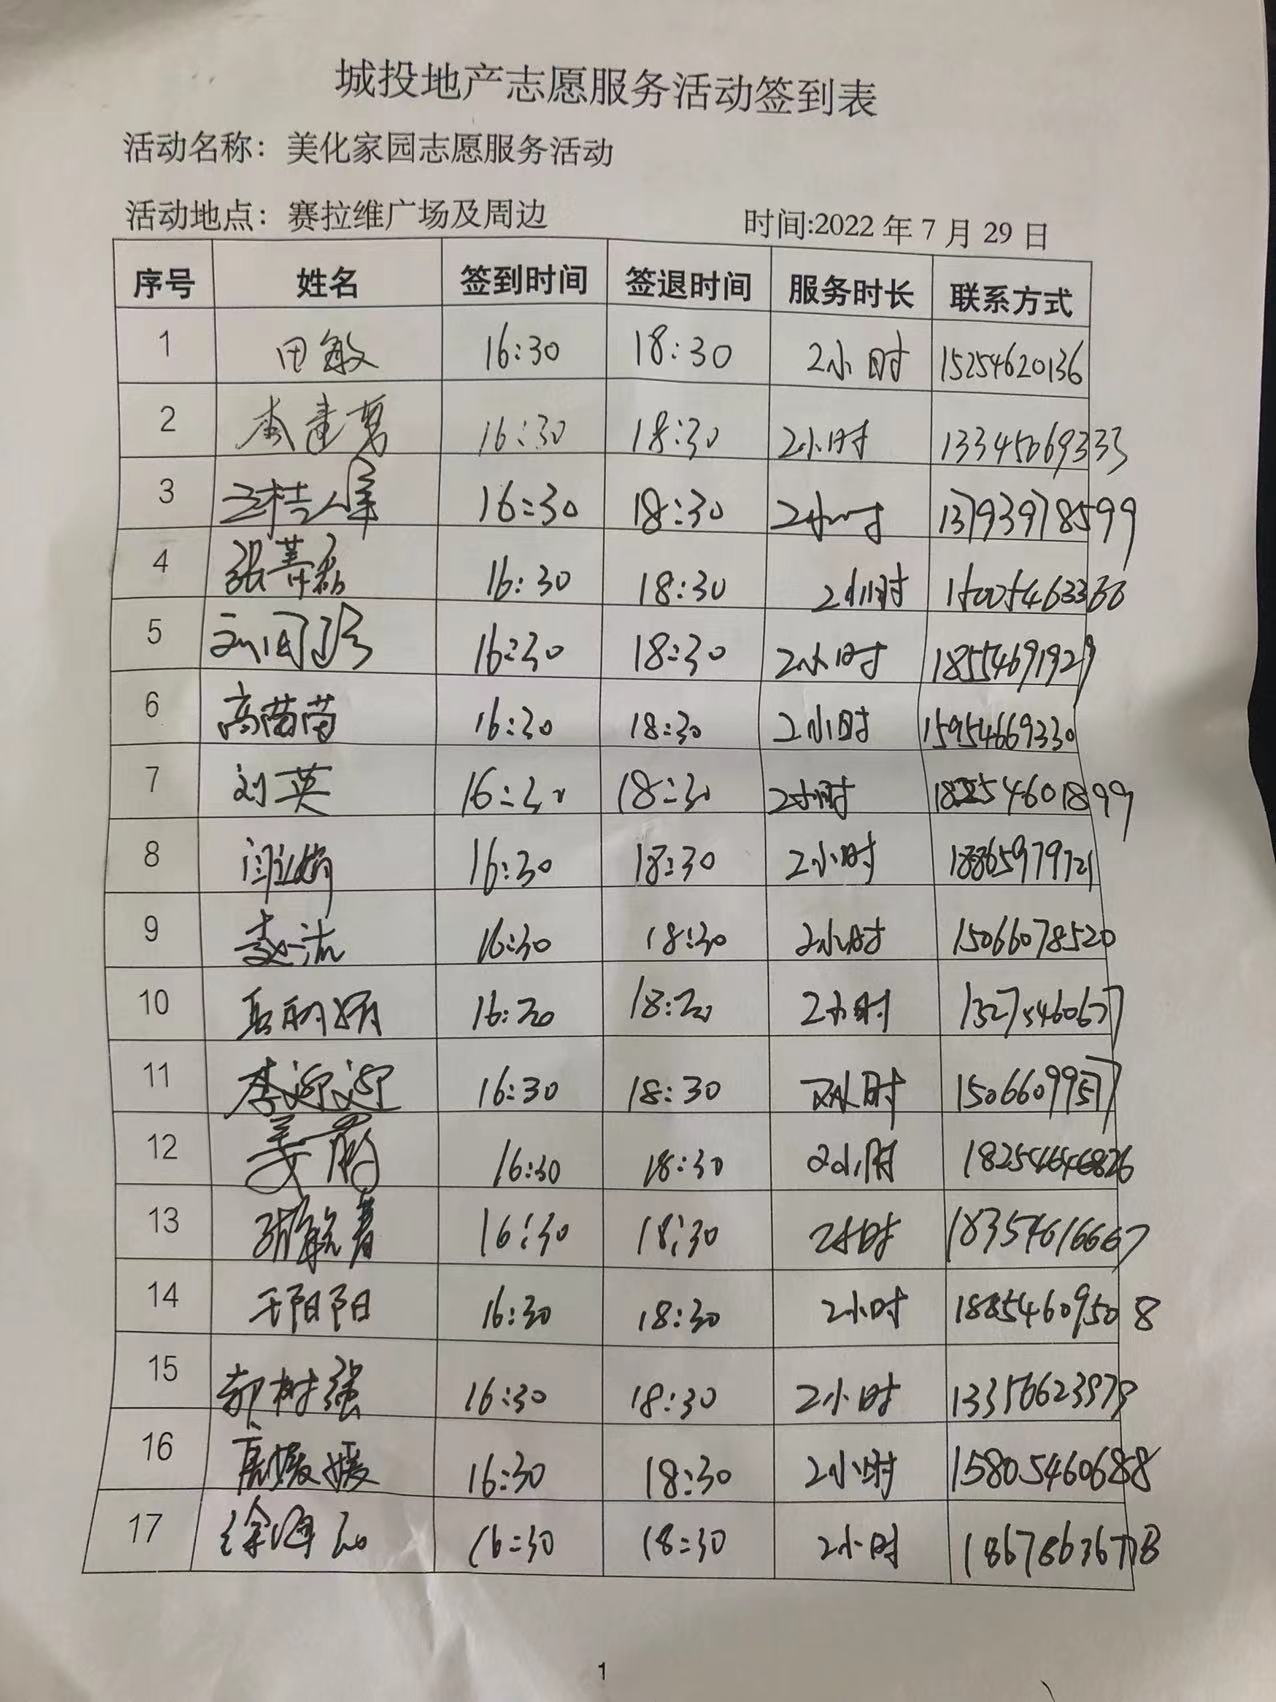 城投地产志愿服务活动签到表
活动名称：美化家园志愿服务活动
活动地点：赛拉维广场及周边 时间:2022年7月29日
序号 姓名 签到时间 签退时间 服务时长 联系方式
1 田敏 16:30 18:30 2小时 15254620136
2 16:30 18:30 2小时 13345069333
3 16:30 18:30 2小时 13793978599
4 张 16:30 18:30 2小时
5 16:30 18:30 2小时 18554691929
6 高苗苗 16:30 18:30 2小时 15954669330
7 刘英 16:30 18:30 2小时
8 16:30 18:30 2小时 18865979721
9 16:30 18:30 2小时 15066078520
10 16:30 18:30 2小时
11 李迎迎 16:30 18:30 2小时 15066099577
12 姜 16:30 18:30 2小时
13 16:30 18:30 2小时 18354616667
14 王阳阳 16:30 18:30 2小时 18854609508
15 郭树强 16:30 18:30 2小时
16 高媛媛 16:30 18:30 2小时 15805460688
17 徐海 16:30 18:30 2小时
1